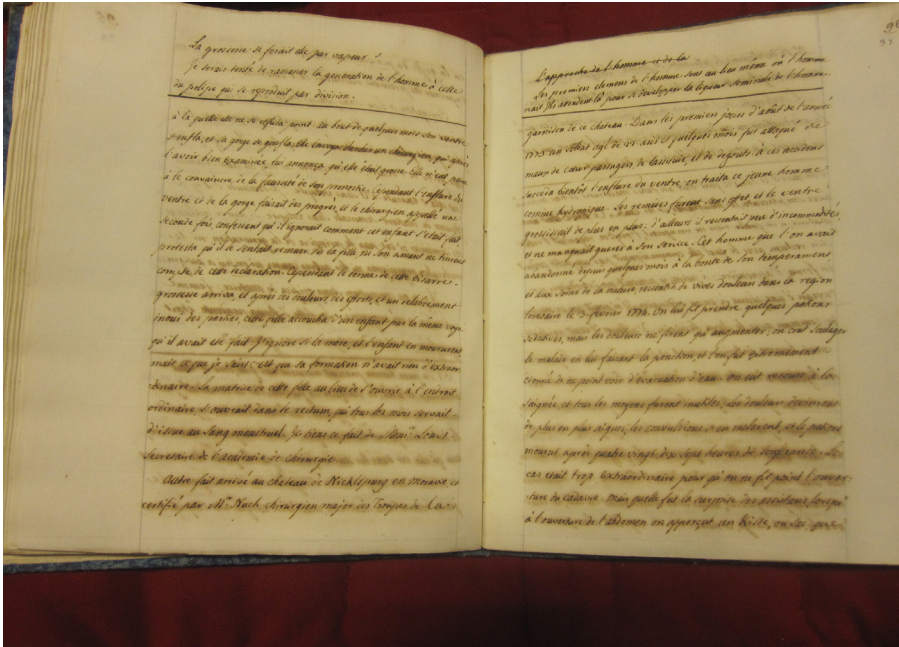 La grossesse se ferait elle par vapeur?
Je serais tenté de ramener la generation de l'homme à celle
du polipe qui se reproduit par division.
à la quille elle ne se refusa point. Au bout de quelques mois son ventre
s'enfla, et sa gorge se gonfla, elle envoya chercher un chirurgien, qui après
l'avoir bien examinée, lui annonça qu'elle était grosse. elle n'eut
à le convaincre de la fausseté de son pronostic. Cependant l'enflure du
ventre et de la gorge faisait des progrès, et le chirurgien appellé une
seconde fois, confessant qu'il ignorait comment cet enfant s'était fait,
protesta qu'il le sentait remuer. Ni la fille ni son amant ne tinrent
compte de cette déclaration. Cependant le terme de cette bizarre
grossesse arriva, et après des douleurs des efforts, et un delabrement
inoui des parties, cette fille accoucha d'un enfant par la même voye
qu'il avait eté fait. J'ignore si la mere, et l'enfant en moururent
mais ce que je sais c'est que sa formation n'avait rien d'extraor
dinaire. La matrice de cette fille au lieu de s'ouvrir à l'endroit
ordinaire, s'ouvrait dans le rectum, qui tous les mois servait
d'issue au sang menstruel. Je tiens ce fait de Monsr. Louis
Secretaire de l'academie de chirurgie
Autre fait arrivé au chateau de Nicklspurg en Moravie et
certifié par Mr. Nuch chirurgien major des Troupes de la
L'approche de l'homme et de la
Les premiers elemens de l'homme sont au lieu même où l'homme
nait. Ils attendent là pour se developper la liqueur seminale de l'homme.
garnison de ce chateau. Dans les premiers jours d'août de l'année
1773 un soldat agé de 22 ans et quelques mois fut attaqué de
maux de cœur passagers de lassitude, et de degouts. à ces accidens
succéda bientôt l'enflure du ventre, on traita ce jeune homme
comme hydropique. Les remedes furent sans effet, et le ventre
grossissait de plus en plus; d'ailleurs il ressentait peu d'incommodités,
et ne manquait gueres à son service. Cet homme que l'on avait
abandonné depuis quelques mois à la bonté de son temperament,
et aux soins de la nature, ressentit de vives douleurs dans la region
lombaire le 3 fevrier 1774. On lui fit prendre quelques potions
sedatives, mais les douleurs ne firent qu'augmenter; on crut soulager
le malade en lui faisant la ponction, et l'on fut extremement
étonné de ne point voir d'évacuation d'eau. On eut recours à la
saignée, et tous les moyens furent inutiles. Les douleurs devinrent
de plus en plus aigues, les convulsions s'en melerent, et le patient
mourut après quatre vingt dix sept heures de souffrance. Le
cas était trop extraordinaire pour qu'on ne fit point l'ouver-
ture du cadavre. Mais quelle fut la surprise des assistans, lorsqu'
à l'ouverture de l'abdomen on apperçut un Kiste, ou sac,